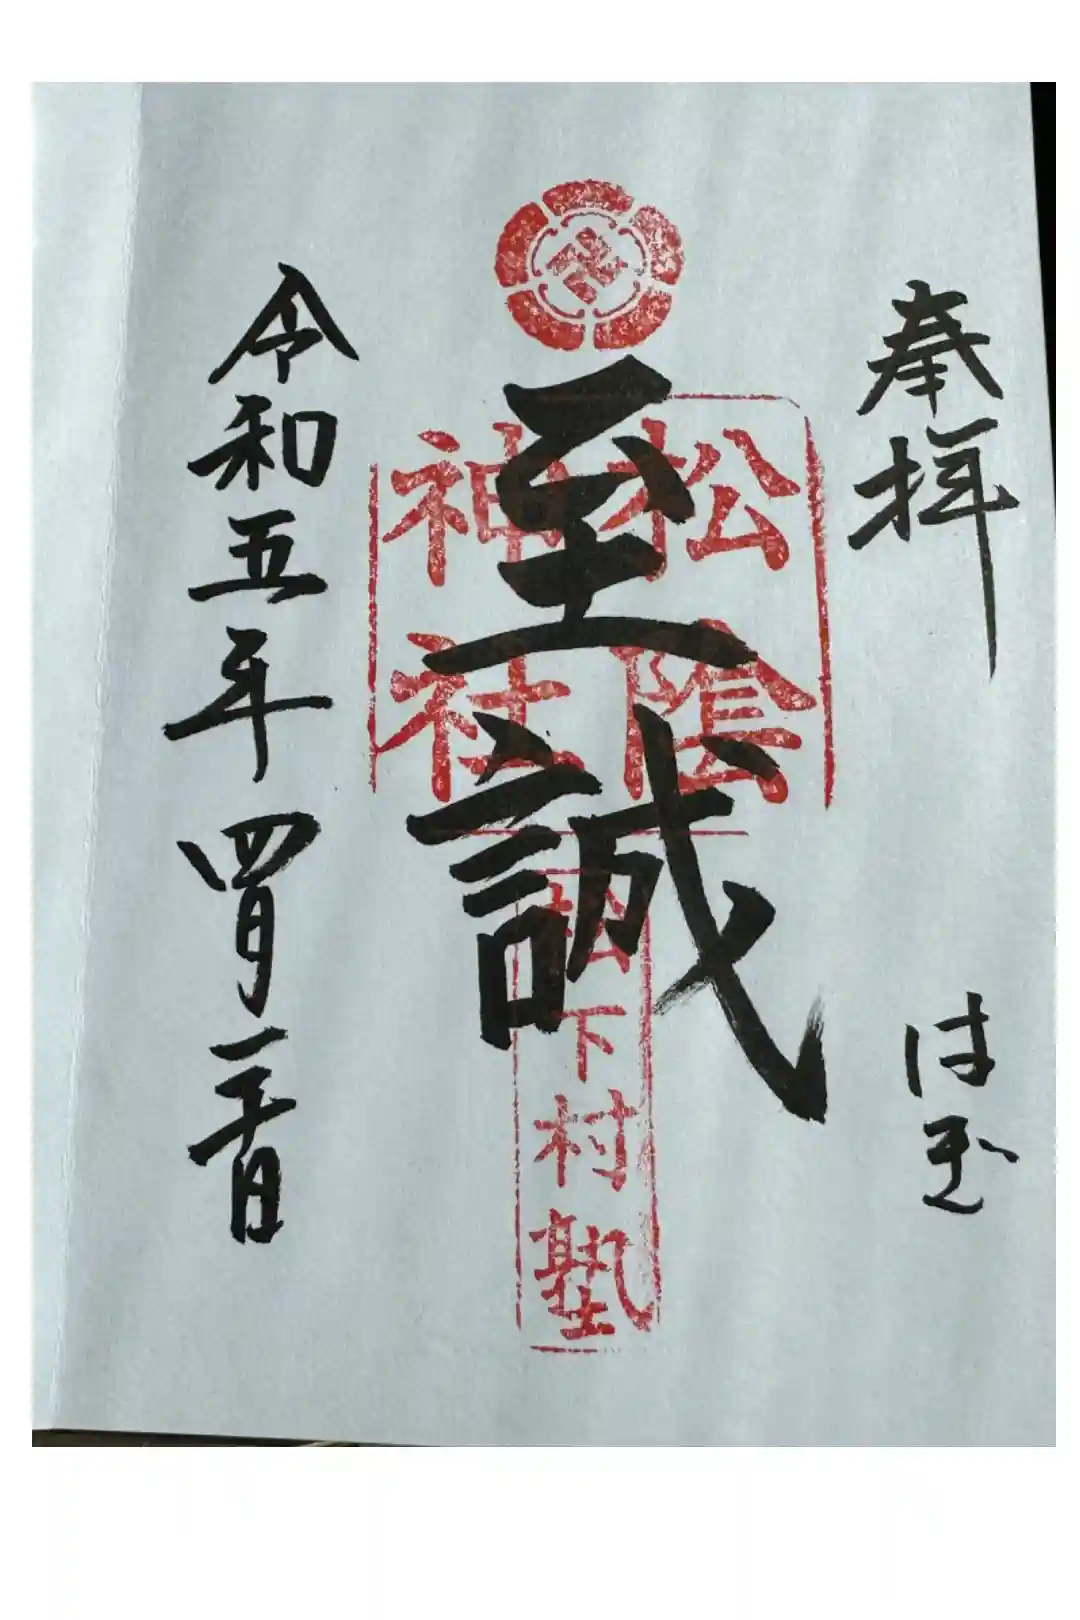 奉拝
はぎ
至誠
松陰
神社
松下村塾
令和五年四月日